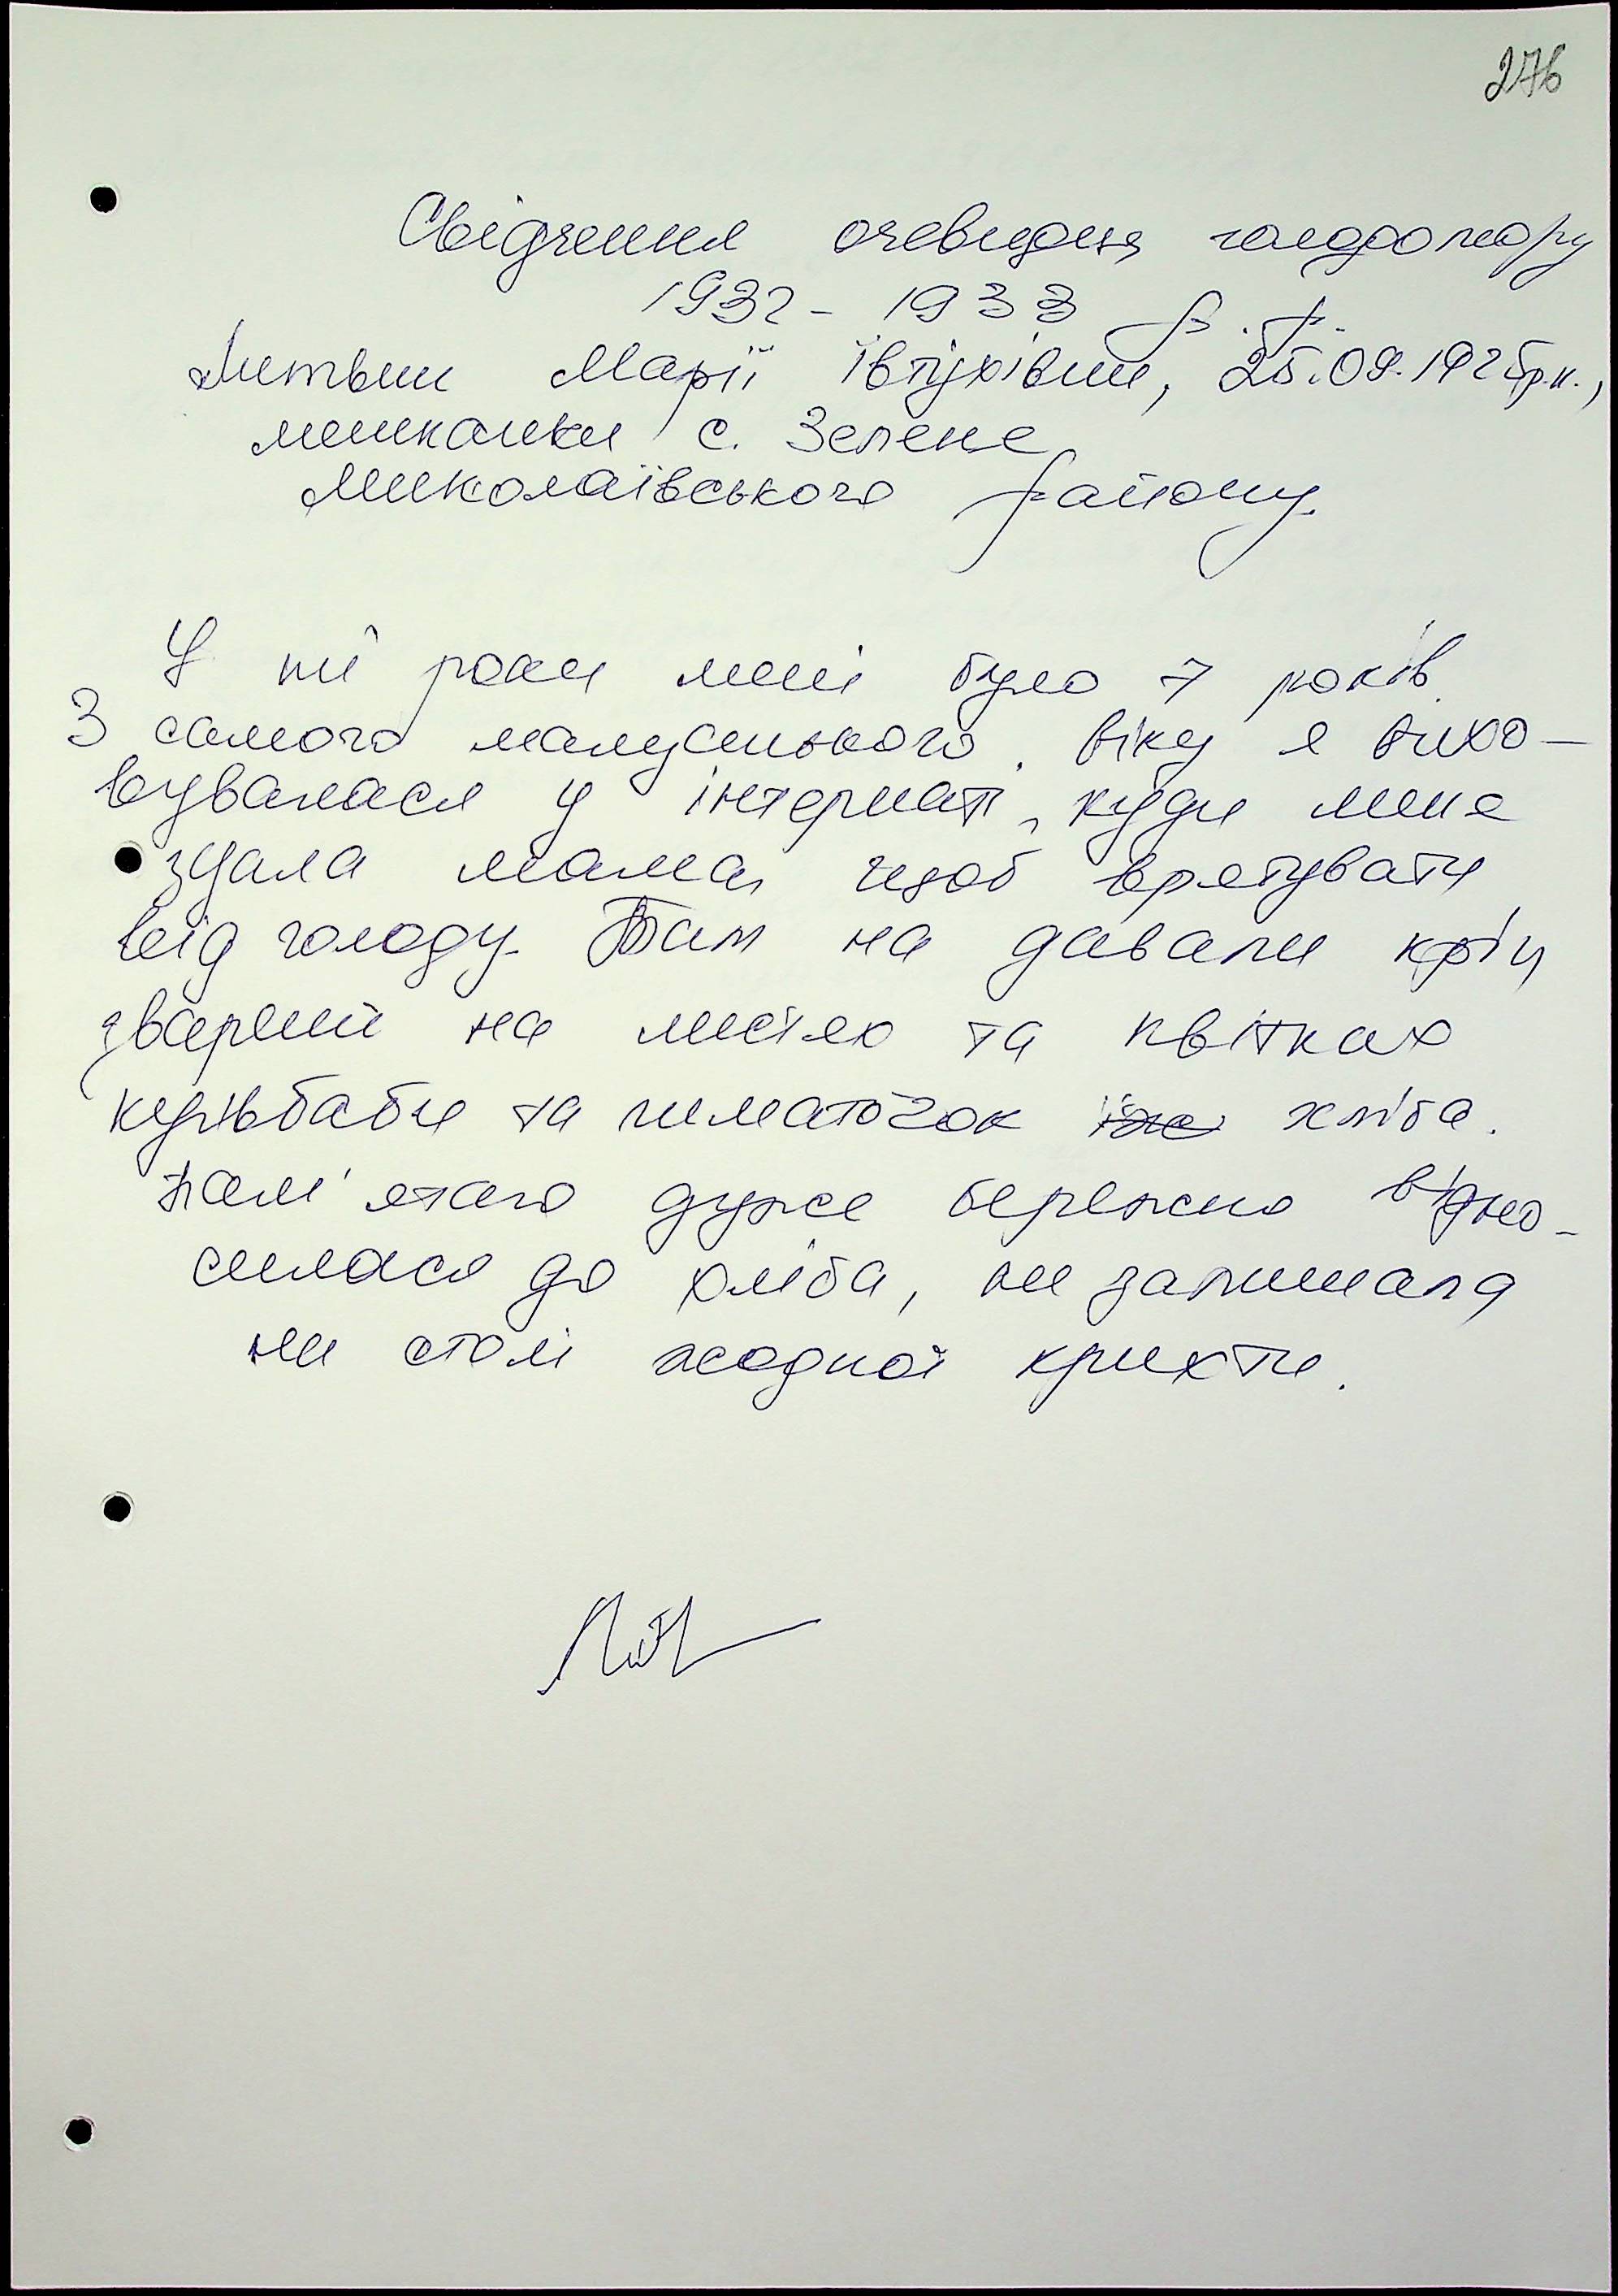 276
Свідчення очевидця голодомору
1932 - 1933 р.р.
Литвин Марії Івтухівни, 25.09.1925р.н.,
мешканки с. Зелене
Миколаївського району.
У ті роки мені було 7 років.
З самого малусенького віку я вихо-
вувалася у інтернаті, куди мене
здала мама, щоб врятувати
від голоду. Там на давали кріп
зварений на листю та квітках
кульбаби та шматочок їже хліба.
Пам'ятаю дуже бережно відно-
силася до хліба, не залишала
на столі жодної крихти.